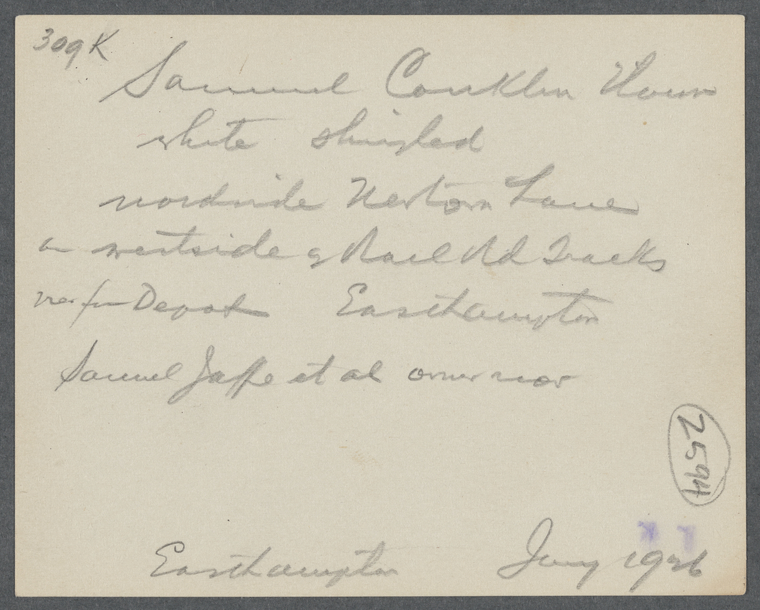 309K
Samuel Conklin House
white shingled
nordside Newtown Lane
on westside of Rail Rd Tracks
Depot Easthampton
Samuel Jaffe et al owner now
2594
Easthampton Jany 1926